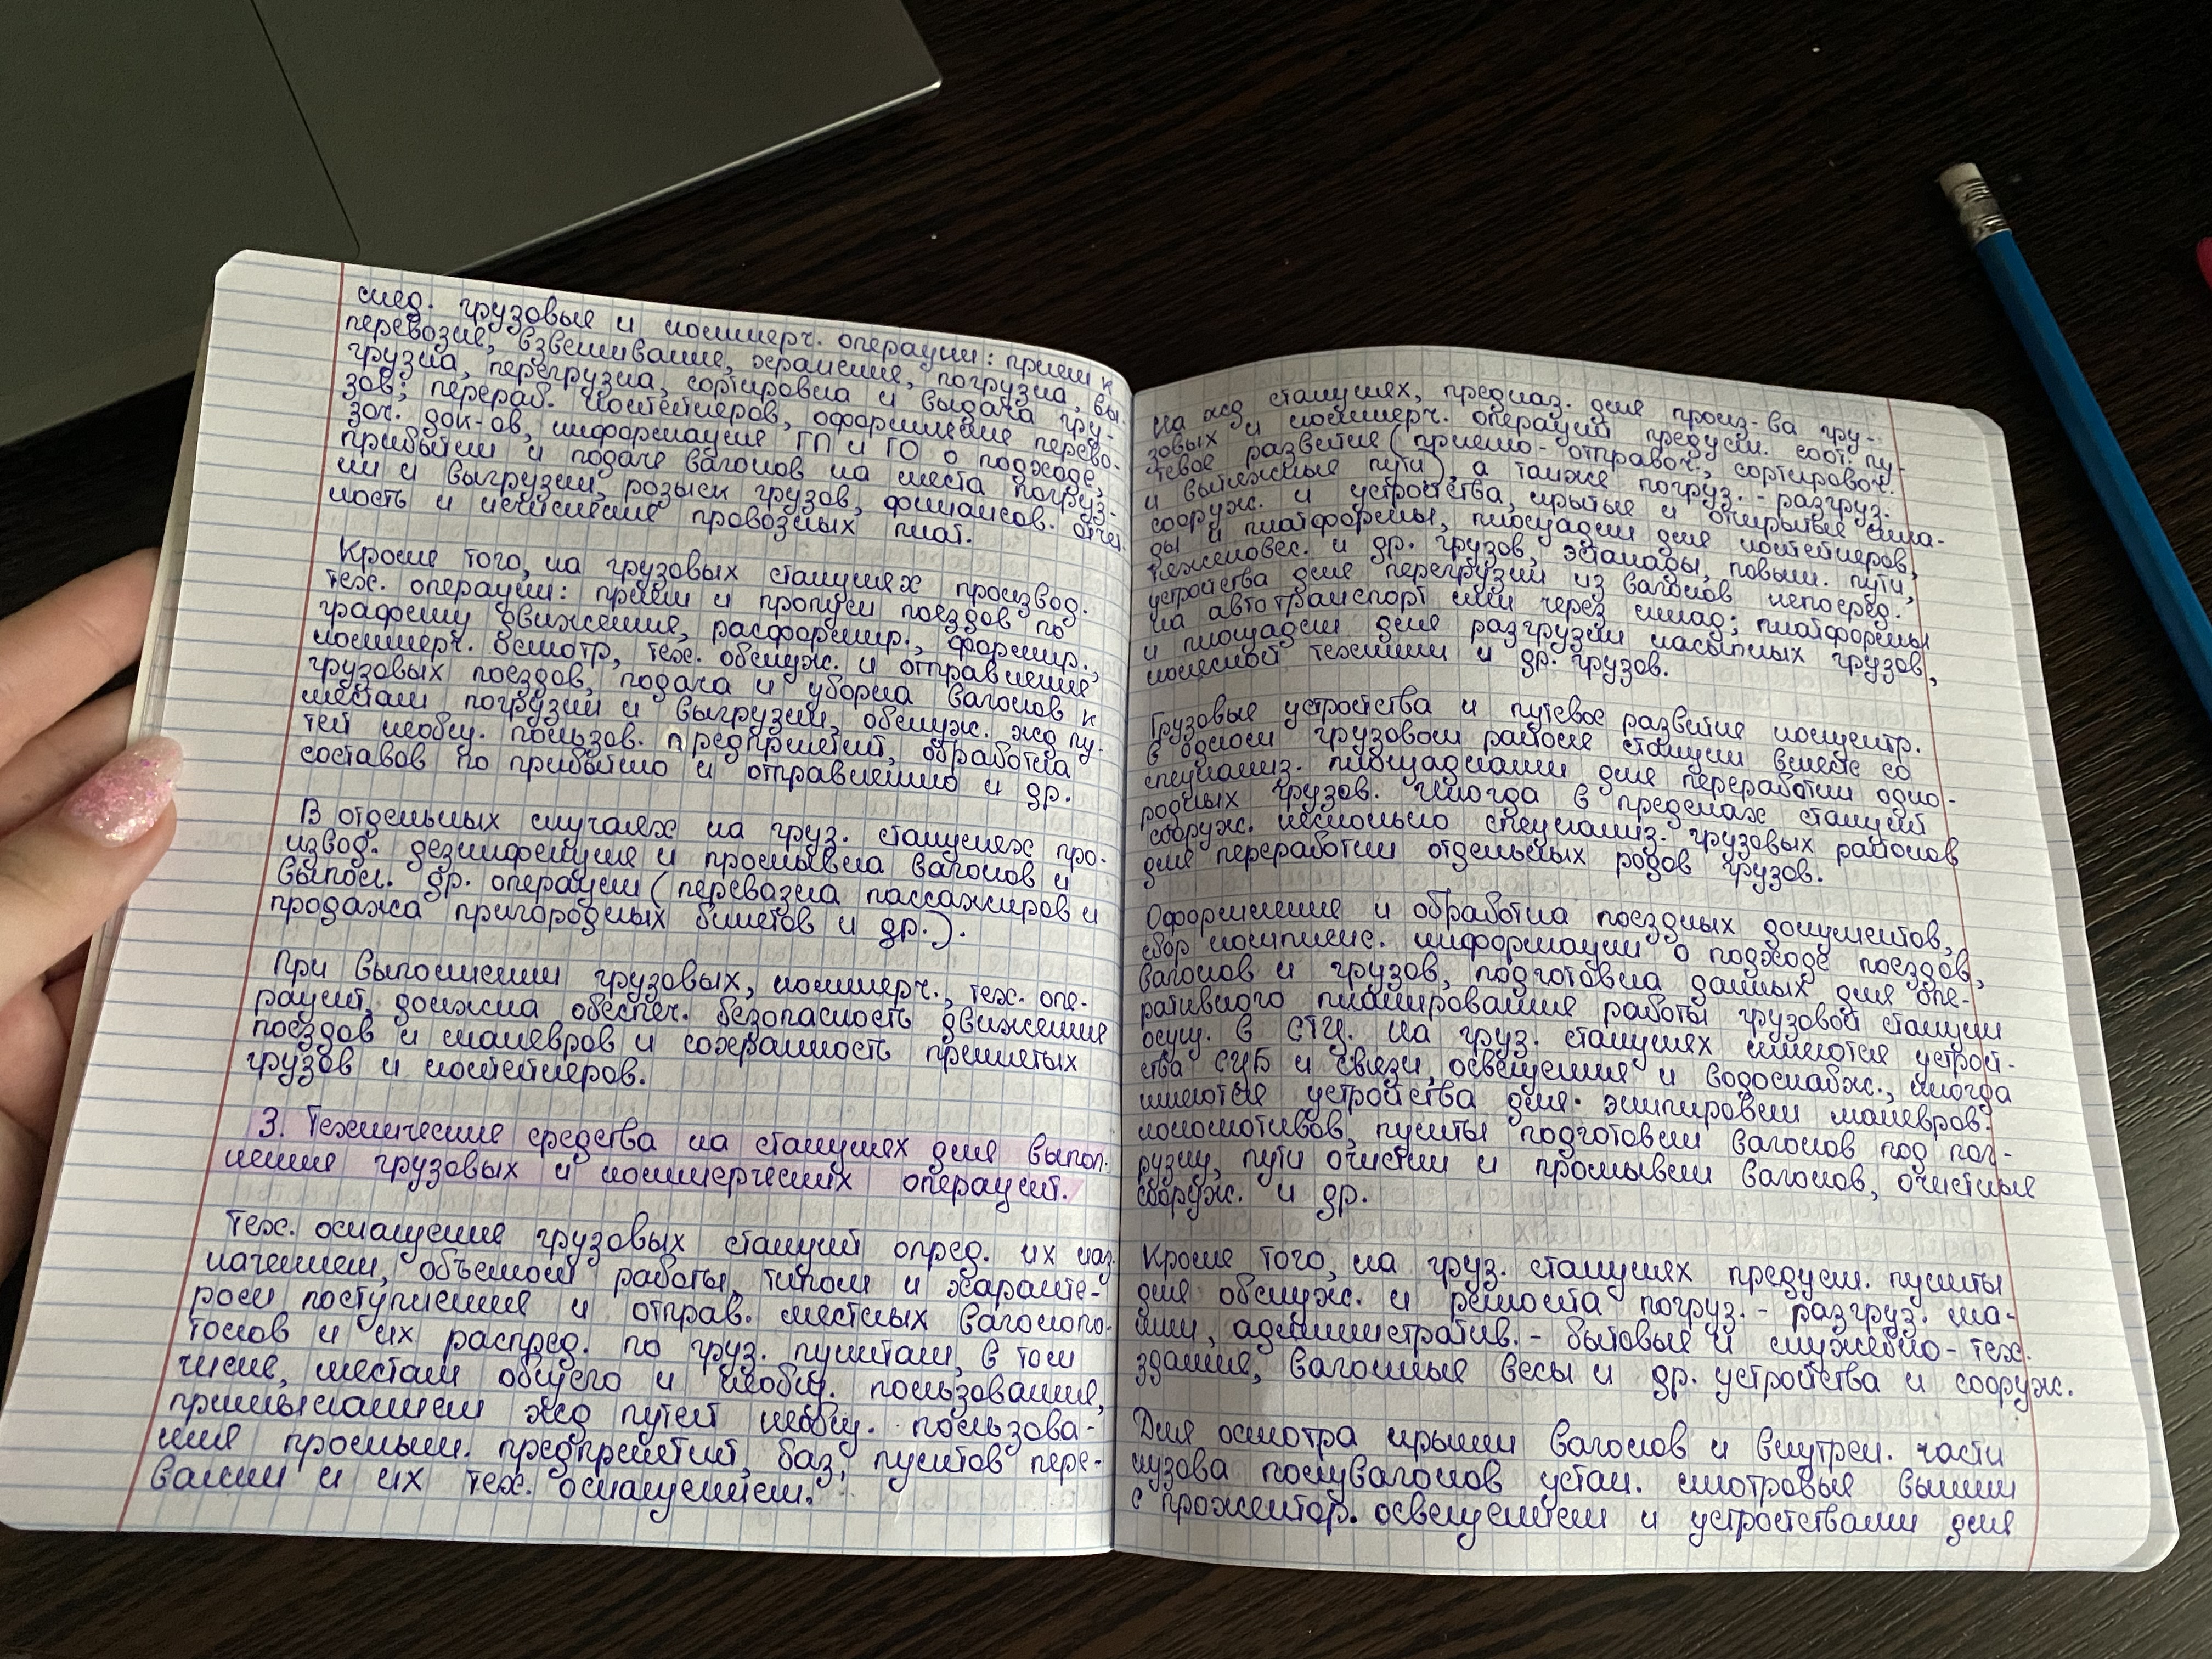 след. грузовые и коммерч. операции: прием к
перевозке, взвешивание, хранение, погрузка, вы-
грузка, перегрузка, сортировка и выдача гру-
зов; перераб. контейнеров, оформление перево-
зоч. док-ов, информация ГП и ГО о подходе,
прибытии и подаче вагонов на места погруз-
ки и выгрузки, розыск грузов, финансов. отчет
ность и исчисление провозных плат.
Кроме того, на грузовых станциях производ.
тех. операции: прием и пропуск поездов по
графику движения, расформир., формир.,
коммерч. осмотр, тех. обслуж. и отправление
грузовых поездов, подача и уборка вагонов к
местам погрузки и выгрузки, обслуж. жд пу-
тей необщ. пользов. предприятий, обработка
составов по прибытию и отправлению и др.
В отдельных случаях на груз. станциях про-
извод. дезинфекция и промывка вагонов и
выпол. др. операции (перевазка пассажиров и
продажа пригородных билетов и др.).
При выполнении грузовых, коммерч., тех. опе-
раций, должна обеспеч. безопасность движения
поездов и маневров и сохранность принятых
грузов и контейнеров.
3. Технические средства на станциях для выпол-
нения грузовых и коммерческих операций.
Тех. оснащение грузовых станций опред. их наз-
начением, объемом работы, типом и характе-
ром поступления и отправ. местных вагонопо-
токов и их распред. по груз. пунктам, в том
числе, местам общего и необщ. пользования,
примыканием жд путей необщ. пользова-
ния промышл. предприятий, баз, пунктов пере-
валки и их тех. оснащением.
На жд станциях, предназ. для произ-ва гру-
зовых и коммерч. операций предусм. соот. пу-
тевое развитие (приемо-отправоч., сортировоч.
и вытяжные пути), а также погруз.-разгруз.
сооруж. и устройства, крытые и открытые скла-
ды и платформы, площадки для контейнеров,
тяжеловес. и др. грузов, эстакады, повыш. пути,
устройства для перегрузки из вагонов непосред.
на автотранспорт или через склад; платформы
и площадки для разгрузки насыпных грузов,
колесной техники и др. грузов.
Грузовые устройства и путевое развитие концентр.
в одном грузовом районе станции вместе со
специализ. площадками для переработки одно-
родных грузов. Иногда в пределах станций
сооруж. несколько специализ. грузовых районов
для переработки отдельных родов грузов.
Оформление и обработка поездных документов,
сбор комплекс. информации о подходе поездов,
вагонов и грузов, подготовка данных для опе-
ративного планирования работы грузовой станции
осущ. в СТЦ. На груз. станциях имеются устрой-
ства СЦБ и связи, освещения и водоснабж., иногда
имеются устройства для экипировки маневров.
локомотивов, пункты подготовки вагонов под пог-
рузку, пути очистки и промывки вагонов, очистные
сооруж. и др.
Кроме того, на груз. станциях предусм. пункты
для обслуж. и ремонта погруз.-разгруз. ма-
шин, административ.-бытовые и служебно-тех.
здания, вагонные весы и др. устройства и сооруж.
Для осмотра крыши вагонов и внутрен. части
кузова полувагонов устан. смотровые вышки
с прожектор. освещением и устройствами для